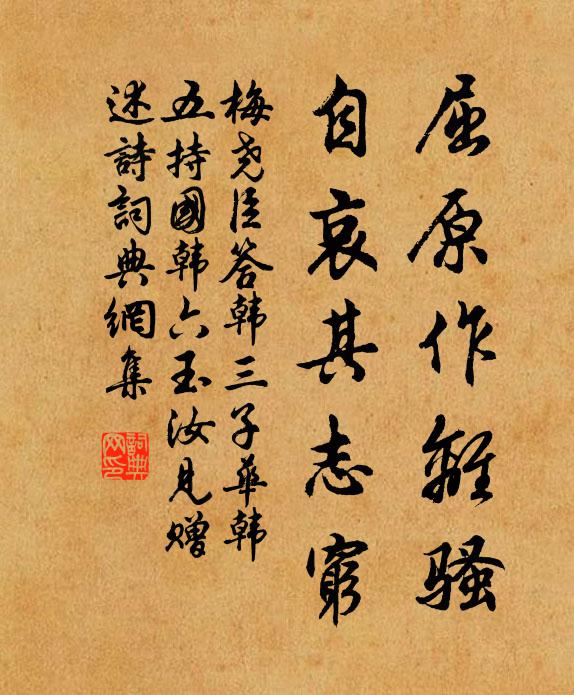 屈原作離骚
自哀其志窮
梅尧臣答韩三子華韩
五持國韩六玉汝見赠
述詩詞典網集
詞典
网印